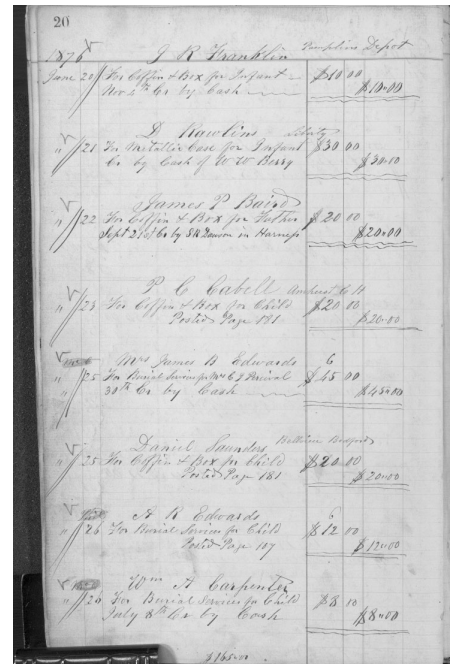 20
1876 J R Franklin Pamplins Depot
June 20 For Coffin & Box for Infant $10 00
Nov 4th Cr by Cash $10.00
D Rawlins Liberty
" 21 For Metallic Case for Infant $30 00
Cr by Cash of W W Berry $30.00
James P Baird
" 22 For Coffin & Box for Father $20 00
Sept 21st Cr by S R Dawson in Harness $20.00
P C Cabell Amherst C H
" 23 For Coffin & Box for Child $20 00
Posted Page 181 $20.00
Mrs James B Edwards 6
" 25 For Burial Services for Mrs C J Percival $45 00
30th Cr by Cash $45.00
Daniel Saunders Bedford
" 25 For Coffin & Box for Child $20.00
Posted Page 181 $20.00
A R Edwards 6
" 26 For Burial Services for Child $12 00
Posted Page 187 $12.00
Wm A Carpenter
" 26 For Burial Services for Child $8 00
July 8th Cr by Cash $8.00
$165.00